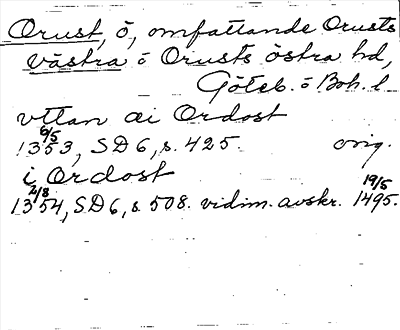 Orust, ö, omfattande Orusts
västra o Orusts östra hd,
Göteb. o Boh. l.
vttan ai Ordost
6/5
1353, SD 6, s. 425. orig.
i Ordost
2/8 19/5
1354, SD 6, s. 508. vidim. avskr. 1495.